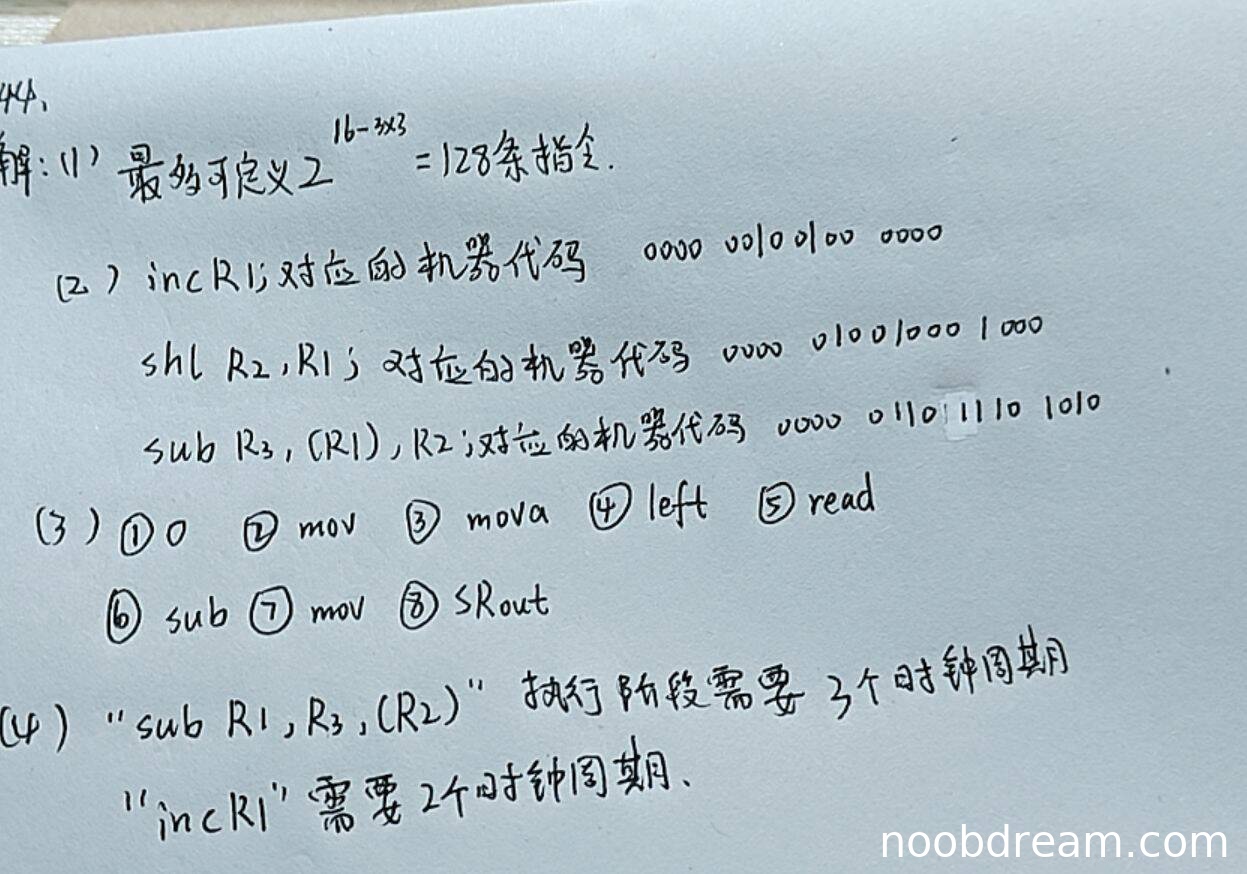 44.
解:(1) 最多可定义2^{16-3×3}=128条指令.
(2) incR1;对应的机器代码 0000 0010 0100 0000
shl R2,R1; 对应的机器代码 0000 0100 1000 1000
sub R3,(R1),R2;对应的机器代码 0000 0110 1110 1010
(3) ①0 ② mov ③ mova ④ left ⑤ read
⑥ sub ⑦ mov ⑧ SRout
(4) "sub R1,R3,(R2)" 执行阶段需要 3个时钟周期
"incR1" 需要2个时钟周期.
noobdream.com